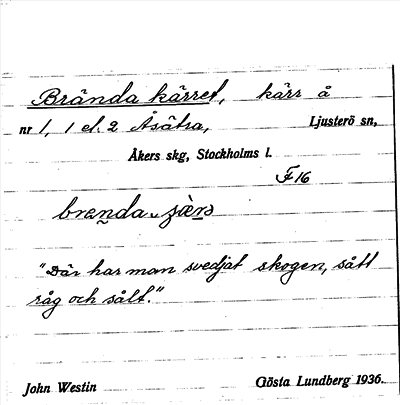 Brända kärret, kärr å
nr 1, 1 el. 2 Åsätra, Ljusterö sn,
Åkers skg, Stockholms l.
F 16
"Där har man svedjat skogen, sått
råg och sålt."
John Westin Gösta Lundberg 1936.